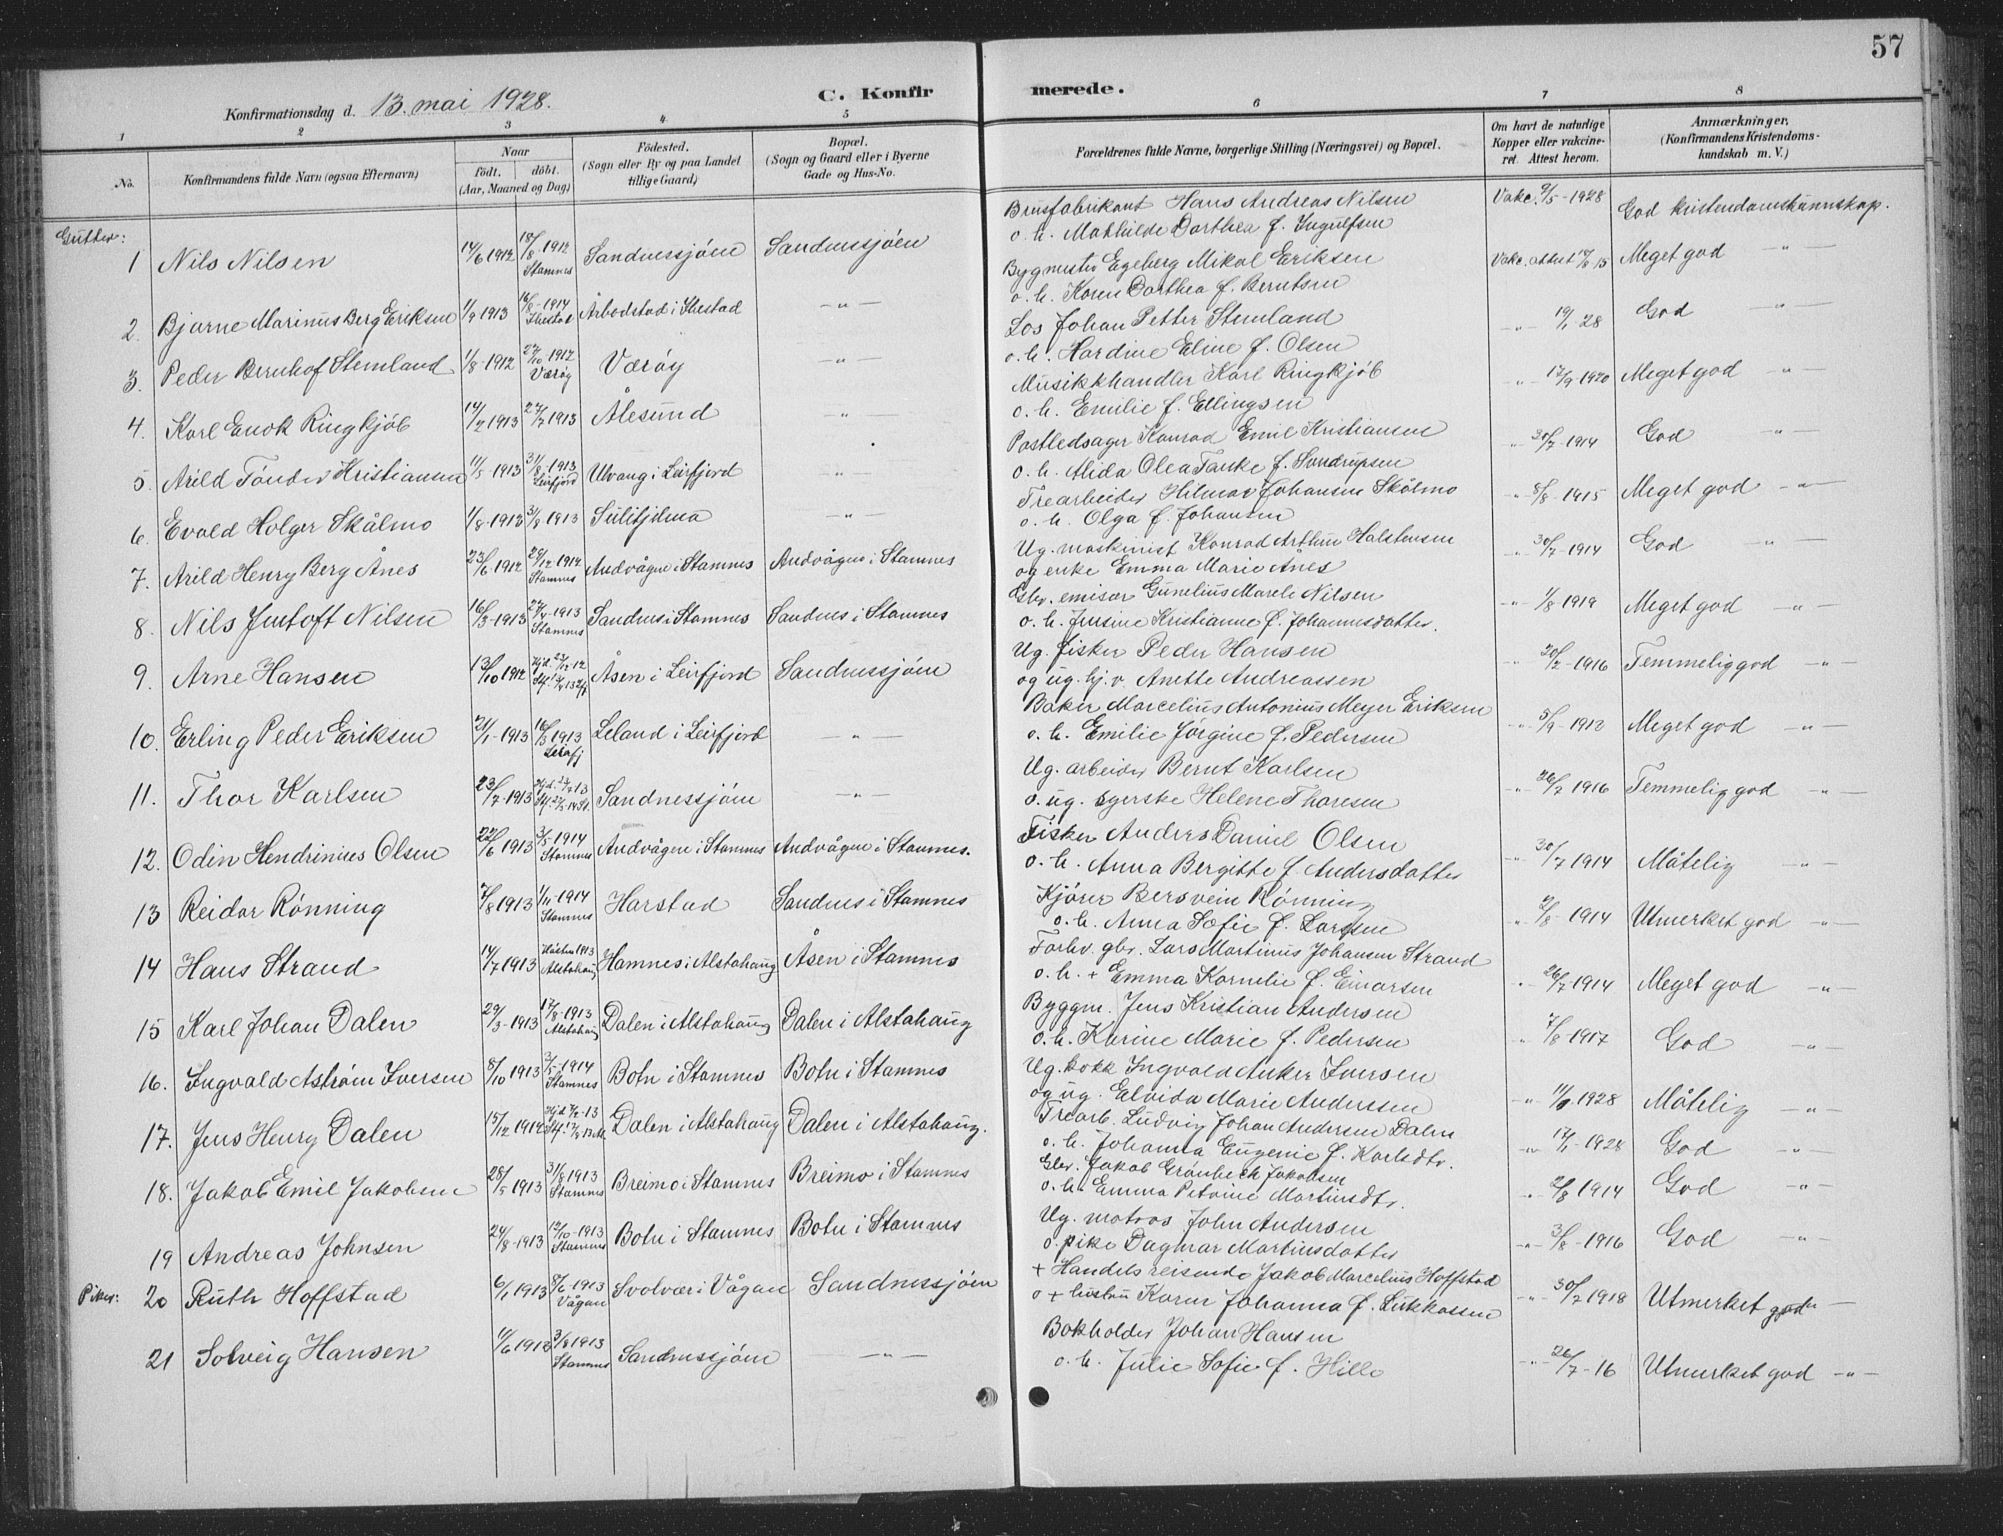 57
C. Konfirmerede.
Konfirmationsdag d. 13. mai 1928.
1 2 3 4. 5 6 7 8
No.
Konfirmandens fulde Navn (ogsaa Efternavn)
Naar
født. døbt.
(Aar, Maaned og Dag)
Fødested.
(Sogn eller By og paa Landet tillige Gaard)
Bopæl.
(Sogn og Gaard eller i Byerne Gade og Hus-No.
Forældrenes fulde Navne, borgerlige Stilling (Næringsvei) og Bopæl.
Om havt de naturlige Kopper eller vakcineret. Attest herom.
Anmærkninger.
(Konfirmandens Kristendomskundskab m. V.)
Gutter:
1 Nils Nilsen 14/6 1912 18/8-1912 Stamnes Sandnessjøen Sandnessjøen Brusfabrikant Hans Andreas Nilsen o. h. Mathilde Dorthea f. Ingulfsen Vakc. 9/5-1928 God kristendomskunnskap.
2. Bjarne Marinus Berg Eriksen 11/9 1913 16/8-1914 Årbodstad i Bygmester Egeberg Mikal Eriksen o. h. Karen Dorthea f. Berntsen Vakc. attest 15 Meget god -"-
3. Peder Bernhof Stemland 1/8-1912 27/10-1912 Værøy Værøy -"- Los Johan Petter Stemland o. h. Hardine Eline f. Olsen -"- 19/1-28 God -"-
4. Karl Enok Ringkjøb 14/2 1913 27/7 1913 Ålesund -"- Musikkhandler Karl Ringkjøb o. h. Emilie f. Ellingsen -"- 17/9 1920 Meget god -"-
5. Arild Tønder Kristiansen 11/5-1913 31/8-1913 Leirfjord Ulvang i Leirfjord -"- Postledsager Konrad Emil Kristiansen o. h. Alida Olea Tanke f. -"- 30/7-1914 God -"-
6. Evald Holger Skålmo 1/8-1913 3/8 1913 Sulitjelma -"- Trearbeider Hilmar Johansen Skålmo o. h. Olga f. Johansen -"- 8/8-1915 Meget god -"-
7. Arild Henry Berg Ånes 23/6-1912 Stamnes Andvågen i Stamnes Andvågen i Stamnes Ug. maskinist Konrad Arthur Halstensen og enke Emma Marie Ånes -"- 30/7-1914 God -"-
8. Nils Jentoft Nilsen 16/3-1913 27/4-1913 Stamnes Sandnes i Stamnes Sandnes i Stamnes Gbr. emisær Gunelius Mareli Nilsen o. h. Jensine Kristianne f. Johannesdatter. -"- 1/8-1919 Meget god -"-
9. Arne Hansen 13/10 1912 Åsen i Leirfjord Sandnessjøen Ug. fisker Peder Hansen og ug. hj. v. Anette Andreassen -"- 20/2-1916 Temmelig god -"-
10. Erling Peder Eriksen 21/1-1913 16/3 1913 Leirfj Leland i Leirfjord -"- Baker Marcelius Antonius Meyer Eriksen o. h. Emilie Jørgine f. Pedersen -"- 5/9-1912 Meget god -"-
11. Thor Karlsen 23/7-1913 Sandnessjøen -"- Ug. arbeider Bernt Karlsen o. ug. syerske Helene Thoresen -"- 26/7 1916 Temmelig god -"-
12. Odin Hendrinius Olsen 22/6 1913 3/5-1914 Stamnes Andvågen i Stamnes Andvågen i Stamnes. Fisker Anders Daniel Olsen o. h. Anna Bergitte f. Andersdatter -"- 30/7 1914 Måtelig -"-
13 Reidar Rønning 7/8 1913 1/11-1914 Stamnes Harstad Sandnes i Stamnes Kjører Bersvein Rønning o. h. Anna Sofie f. Larssen -"- 2/8-1914 Utmerket god -"-
14 Hans Strand 14/7 1913 1913 Alstahaug Hamnes i Alstahaug Åsen i Stamnes Forhv. gbr. Lars Martinus Johansen Strand o. h. + Emma Kornelie f. Einarsen -"- 26/7-1914 Meget god -"-
15 Karl Johan Dalen 29/3-1913 17/8-1913 Alstahaug Dalen i Alstahaug Dalen i Alstahaug Byggm. Jens Kristian Andersen o. h. Karine Marie f. Pedersen -"- 7/8 1917 God -"-
16. Ingvald Astrøm Iversen 8/10 1913 3/5-1914 Stamnes Botn i Stamnes Botn i Stamnes Ug. kokk Ingvald Anker Iversen og ug. Elvida Marie Anderssen -"- 1928 Måtelig -"-
17. Jens Henry Dalen 15/12 1912 Dalen i Alstahaug Dalen i Alstahaug. Trearb. Ludvig Johan Andersen Dalen o. h. Johanna Eugenie f. Karlsdtr. -"- 17/1-1928 God -"-
18. Jakob Emil Jakobsen 28/5 1913 31/8 1913 Stamnes Breimo i Stamnes Breimo i Stamnes Gbr. Jakob Grønbech Jakobsen o. h. Emma Petrine Martinsdtr. -"- 2/8 1914 God -"-
19 Andreas Johnsen 24/8-1913 12/10-1913 Stamnes Botn i Stamnes Botn i Stamnes Ug. matros John Andersen o. pike Dagmar Martinsdatter -"- 3/8-1916 God -"-
Piker:
20 Ruth Hoffstad 6/1 1913 8/6-1913 Vågan Svolvær i Vågan Sandnessjøen + Handelsreisende Jakob Marcelius Hoffstad o + hustru Karen Johanna f. Lukkassen -"- 30/7 1918 Utmerket god -"-
21 Solveig Hansen 11/6 1913 3/8 1913 Stamnes Sandnessjøen -"- Bokholder Johan Hansen o. h. Julie Sofie f. Hille -"- 26/7-16 Utmerket god -"-